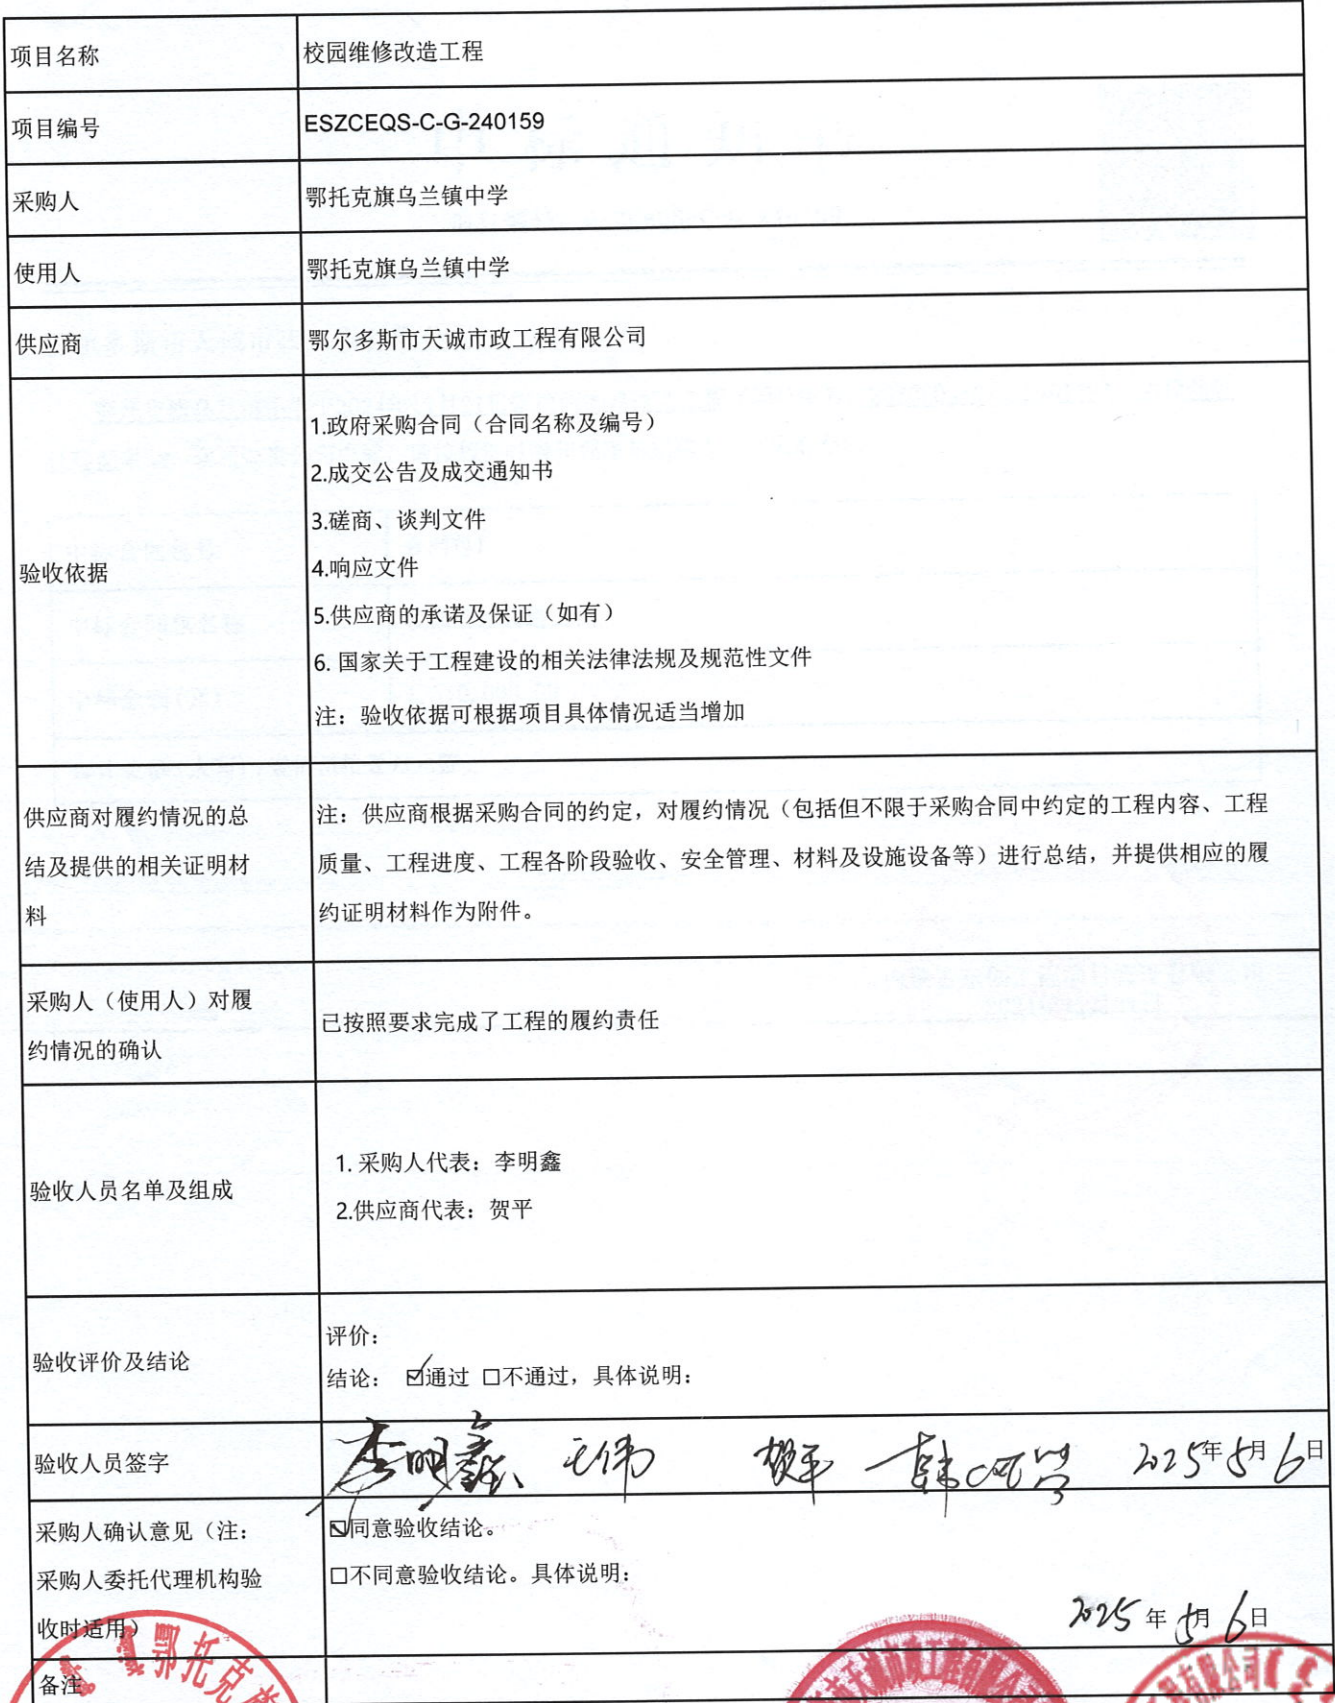 项目名称
校园维修改造工程
项目编号
ESZCEQS-C-G-240159
采购人
鄂托克旗乌兰镇中学
使用人
鄂托克旗乌兰镇中学
供应商
鄂尔多斯市天诚市政工程有限公司
验收依据
1.政府采购合同（合同名称及编号）
2.成交公告及成交通知书
3.磋商、谈判文件
4.响应文件
5.供应商的承诺及保证（如有）
6. 国家关于工程建设的相关法律法规及规范性文件
注：验收依据可根据项目具体情况适当增加
供应商对履约情况的总
结及提供的相关证明材
料
注：供应商根据采购合同的约定，对履约情况（包括但不限于采购合同中约定的工程内容、工程
质量、工程进度、工程各阶段验收、安全管理、材料及设施设备等）进行总结，并提供相应的履
约证明材料作为附件。
采购人（使用人）对履
约情况的确认
已按照要求完成了工程的履约责任
验收人员名单及组成
1. 采购人代表：李明鑫
2.供应商代表：贺平
验收评价及结论
评价：
结论： ☑通过 □不通过，具体说明：
验收人员签字
李明鑫 贺平 2025年5月6日
采购人确认意见（注：
采购人委托代理机构验
收时适用）
☑同意验收结论。
□不同意验收结论。具体说明：
2025年5月6日
备注
鄂托克旗
天诚市政工程有限公司
有限公司